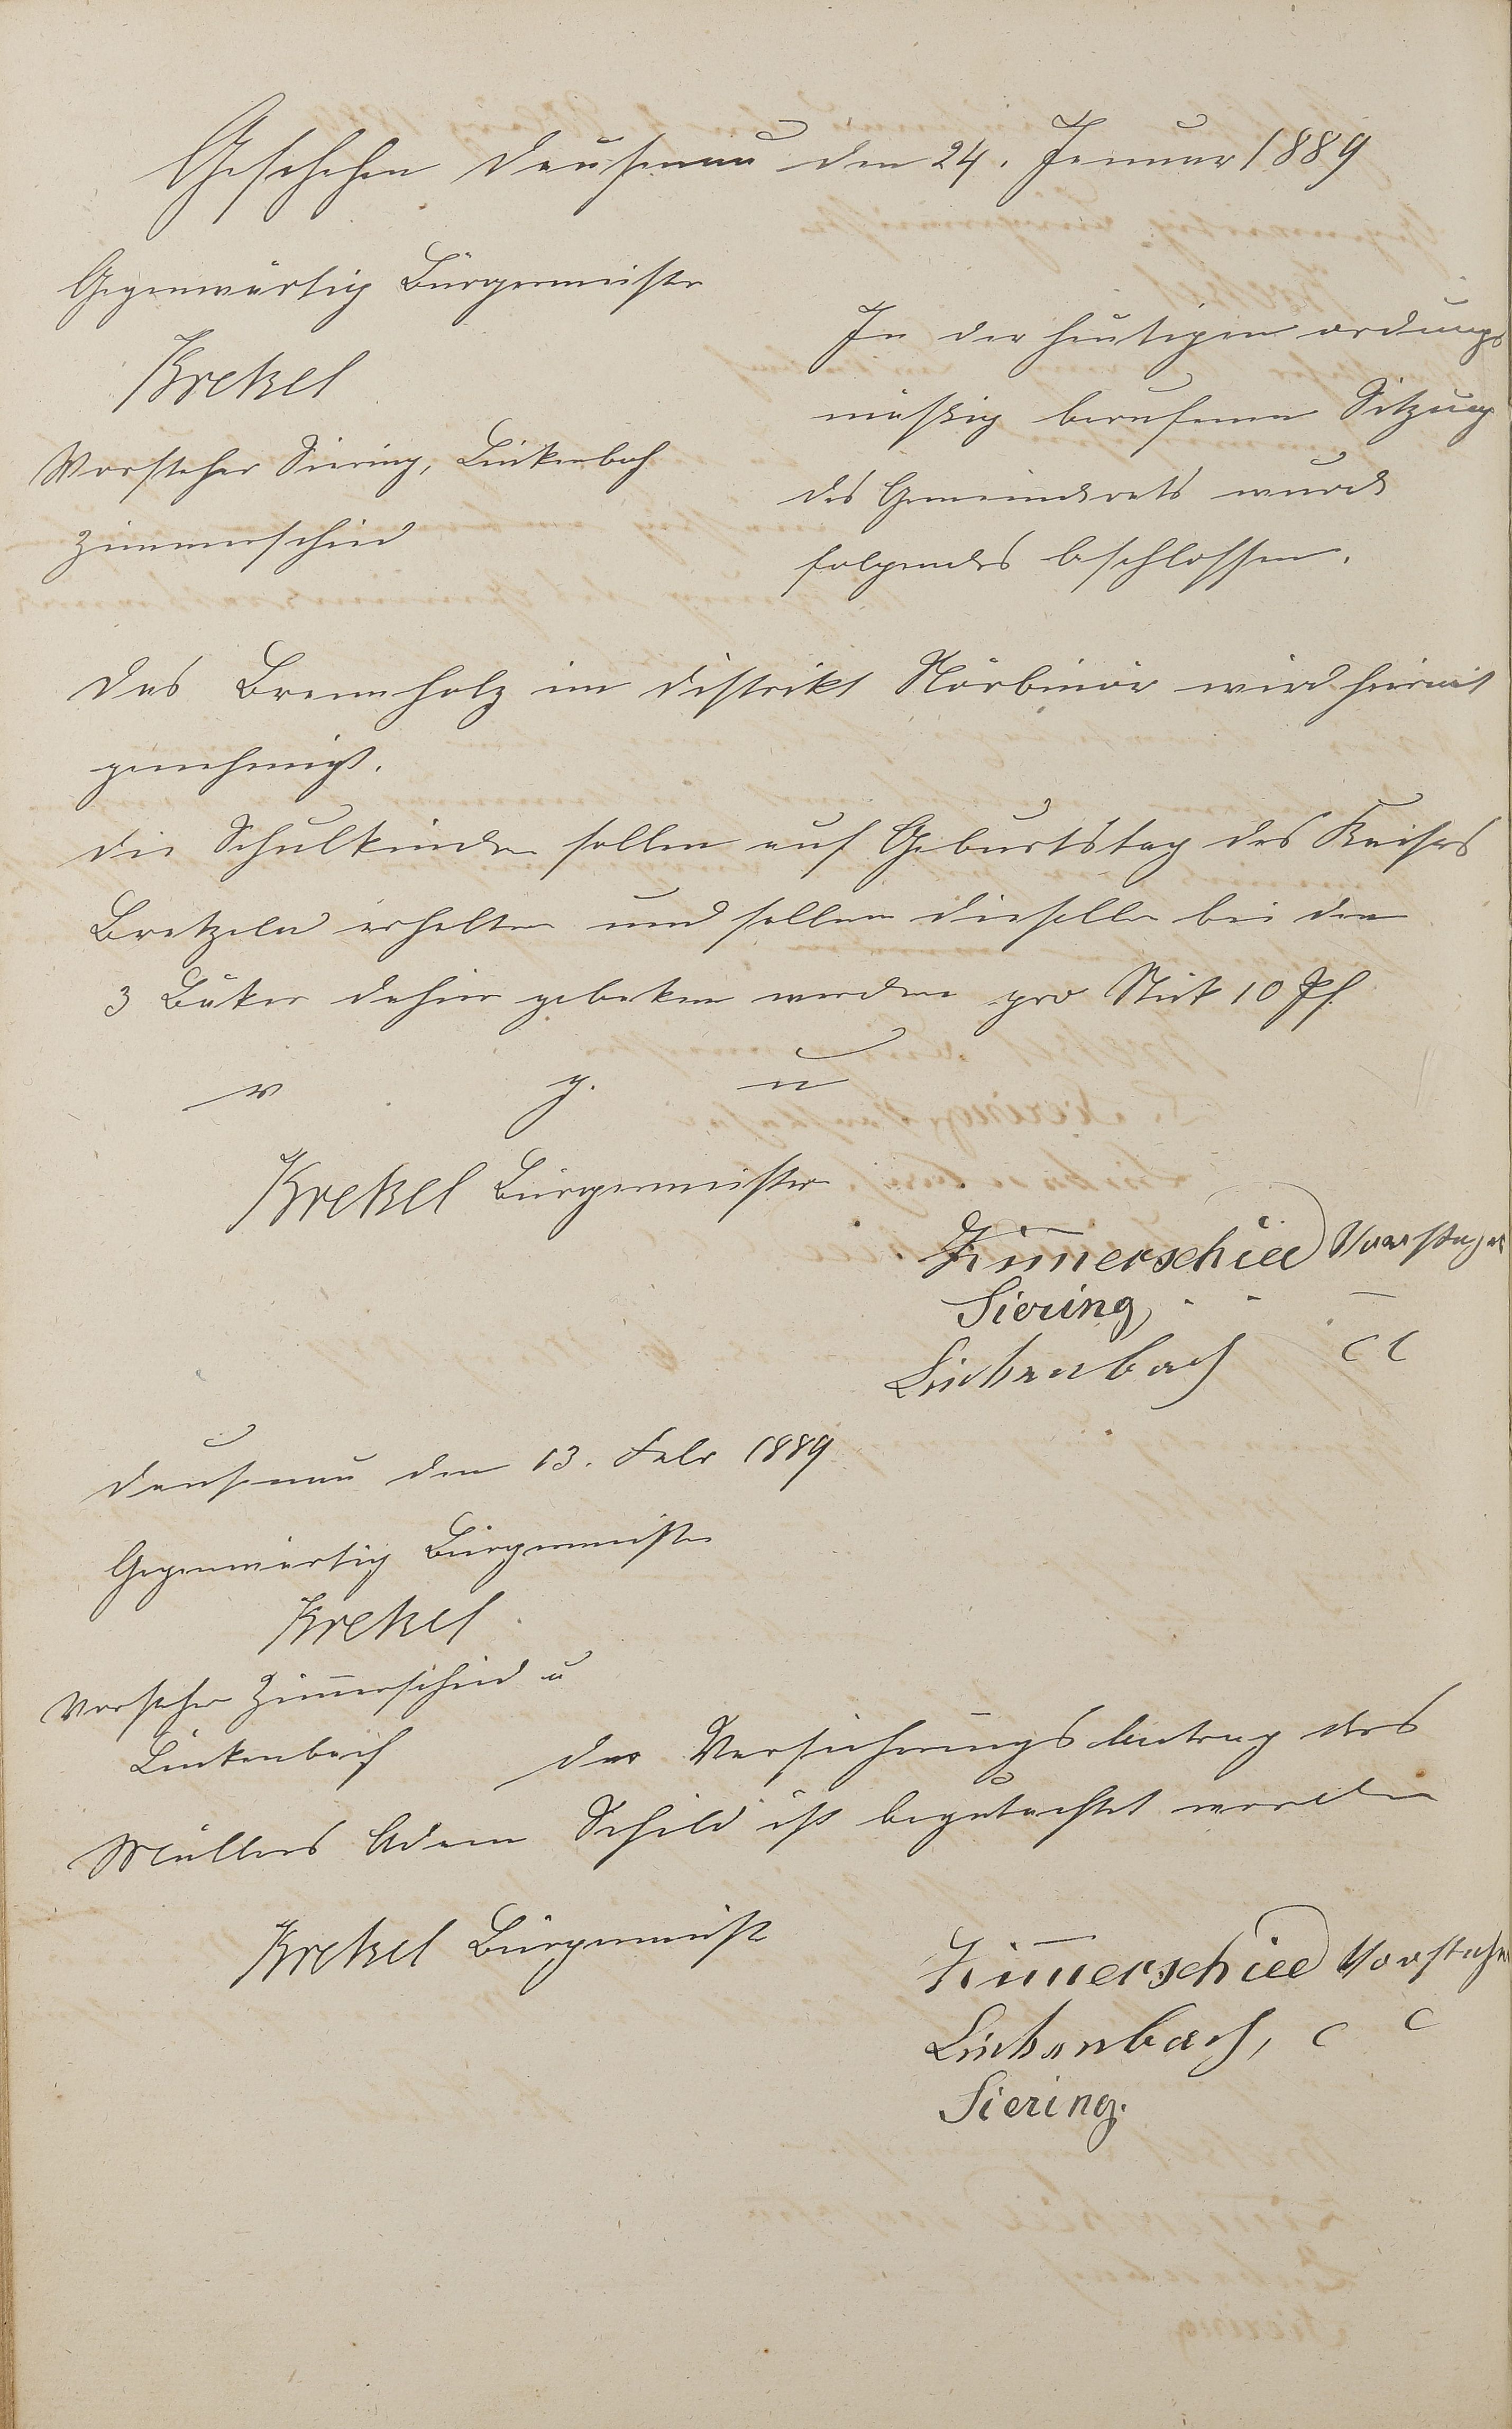 Geschehen Dausenau den 24. Januar 1889
Gegenwärtig Bürgermeister
Krekel
Vorsteher Siering, Linkenbach
Zimmerschied
In der heutigen ordungs
mäßig berufenen Sitzung
des Gemeinderats wurde
folgendes beschlossen.
Das Brennholz im Distrikt wird hiermit
genehmigt.
Die Schulkinder sollen auf Geburtstag des Kaisers
Bretzeln erhalten und sollen dieselben bei den
3 Bäker dahier gebaken werden pro Stük 10 Pf
v. g. u
Krekel Bürgermeister
Zim̅erschied Vorsteher
Siering, " "
Linkenbach "
Dausenau den 13. Febr 1889
Gegenwärtig Bürgermeister
Krekel
Vorsteher Zim̅erschied u
Linkenbach
Der Versicherungsantrag des
Müllers Adam Schild ist begutachtet worden
Krekel Bürgermeister
Zim̅erschied Vorsteher
Linkenbach, "
Siering.